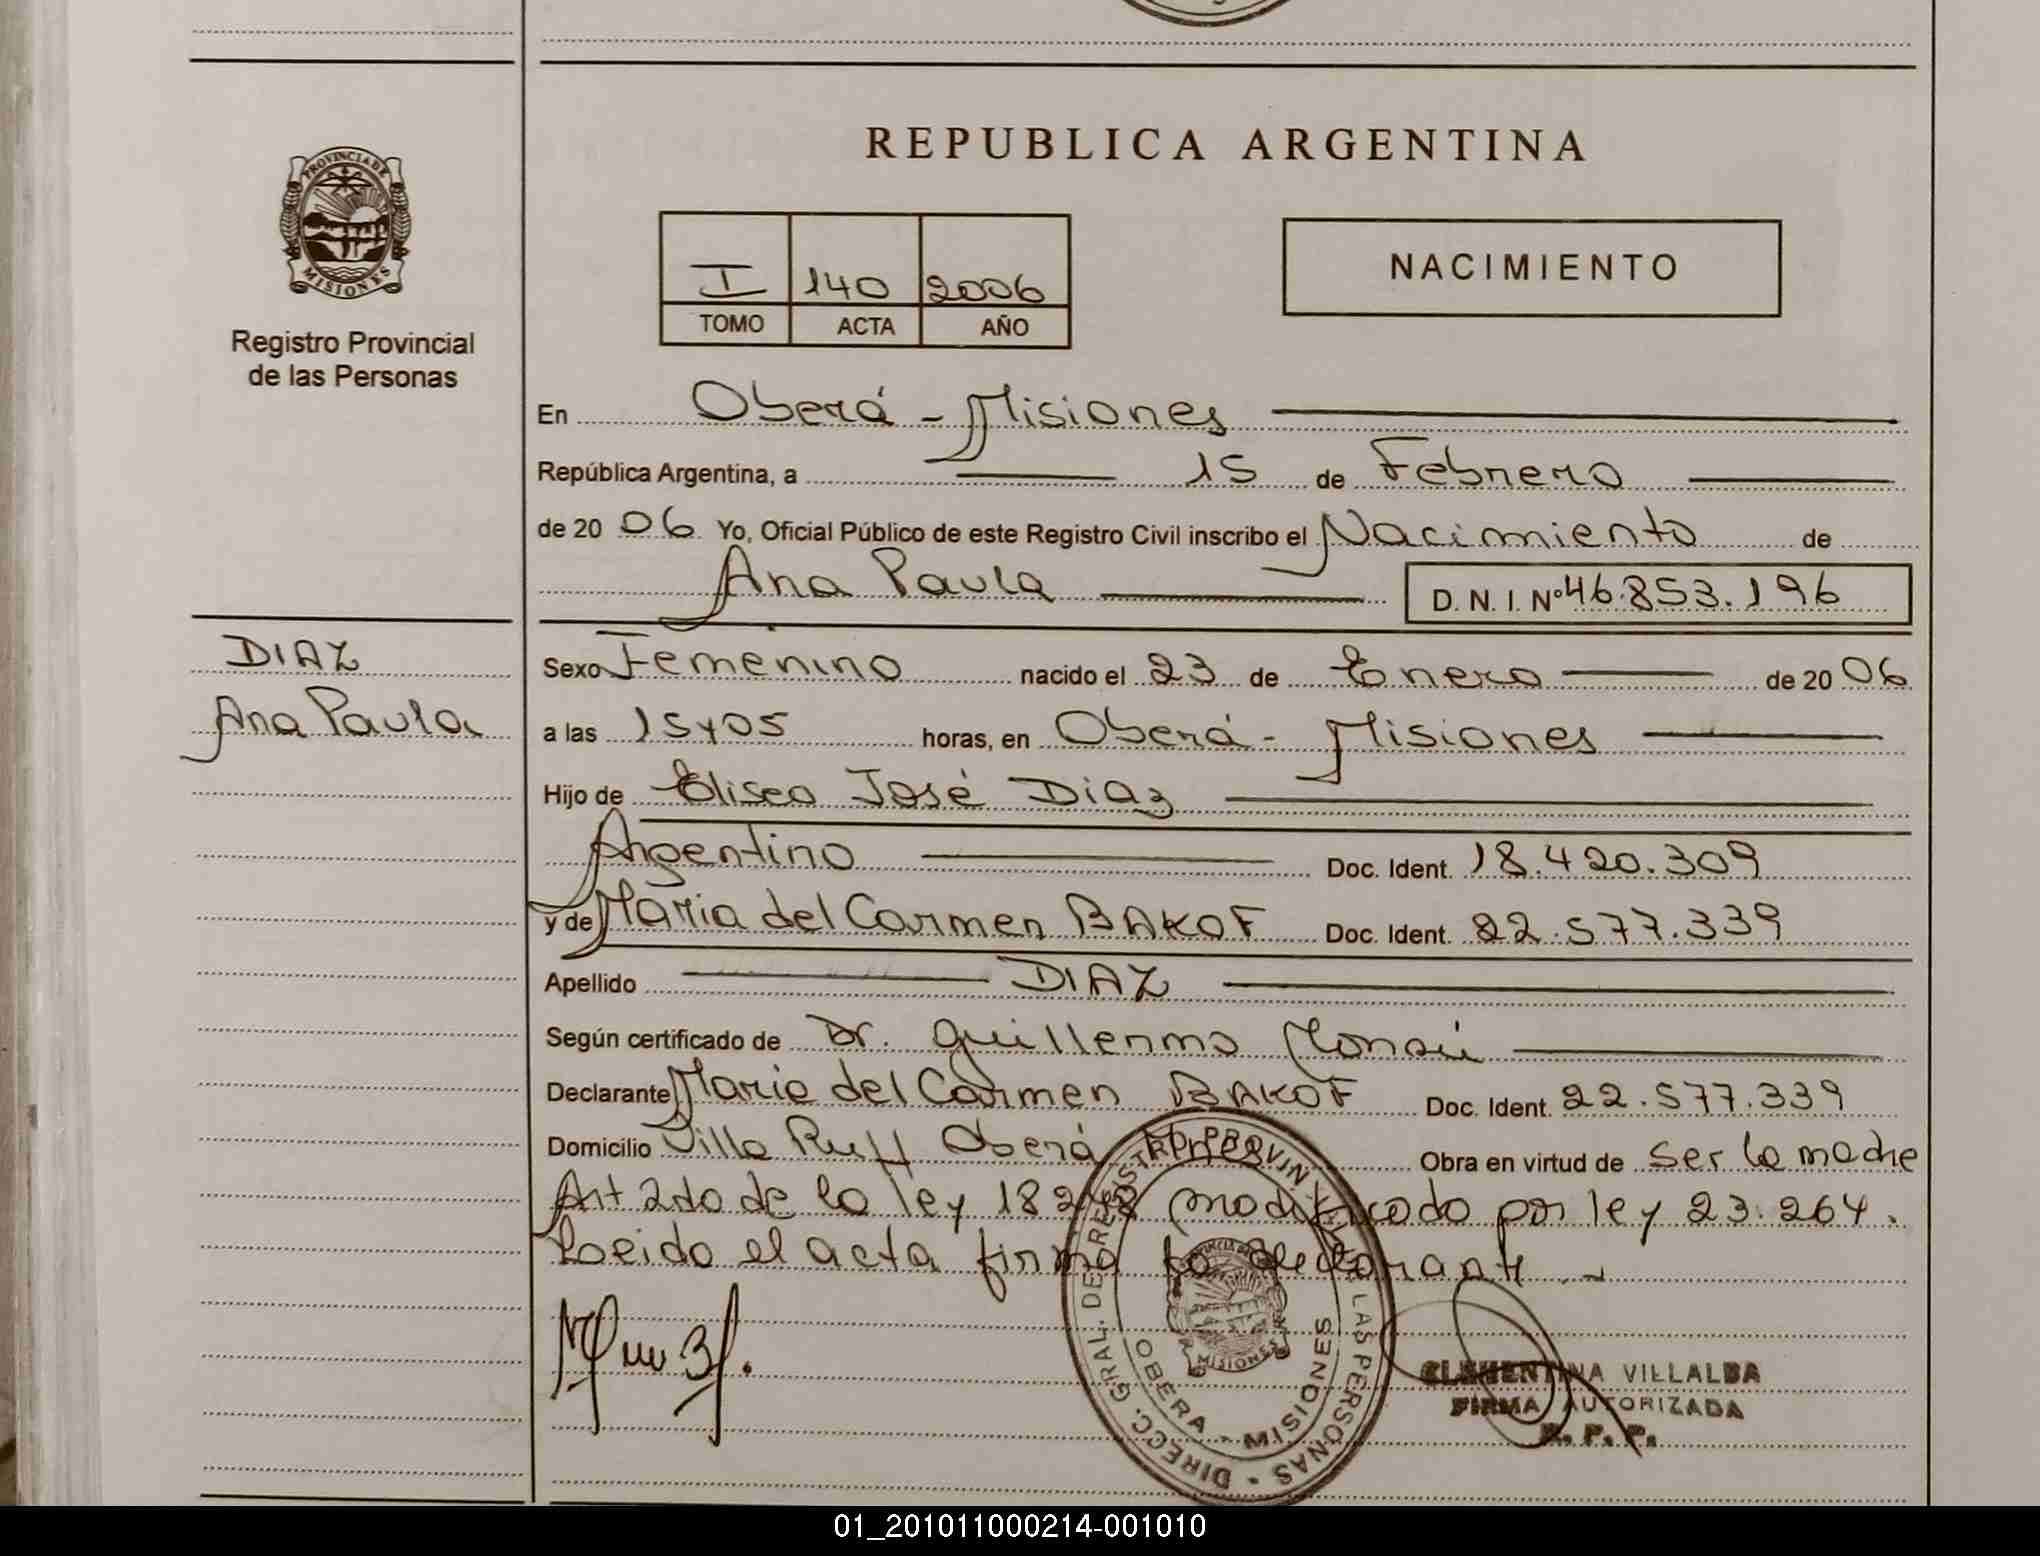 REPUBLICA ARGENTINA
PROVINCIA DE
MISIONES
Registro Provincial
de las Personas
I 140 2006
TOMO ACTA AÑO
NACIMIENTO
En Oberá - Misiones
República Argentina, a 15 de Febrero
de 20 06 Yo, Oficial Público de este Registro Civil inscribo el Nacimiento de
Ana Paula D. N. I. Nº 46.853.196
DIAZ
Ana Paula
Sexo Femenino nacido el 23 de Enero de 20 06
a las 15 y 05 horas, en Oberá - Misiones
Hijo de Eliseo José Diaz
Argentino Doc. Ident. 18.420.309
y de Maria del Carmen BAKOF Doc. Ident. 22.577.339
Apellido DIAZ
Según certificado de Dr. Guillermo
Declarante Maria del Carmen BAKOF Doc. Ident. 22.577.339
Domicilio Villa Ruff Oberá Obra en virtud de ser la madre
Art 2do de la ley 18248 modificado por ley 23.264.
Leido el acta firma la declarante -
DIRECC. GRAL. DE REGISTRO PROVINCIAL DE LAS PERSONAS
OBERA - MISIONES
PROVINCIA DE
MISIONES
CLEMENTINA VILLALBA
FIRMA AUTORIZADA
R. P. P.
01_201011000214-001010